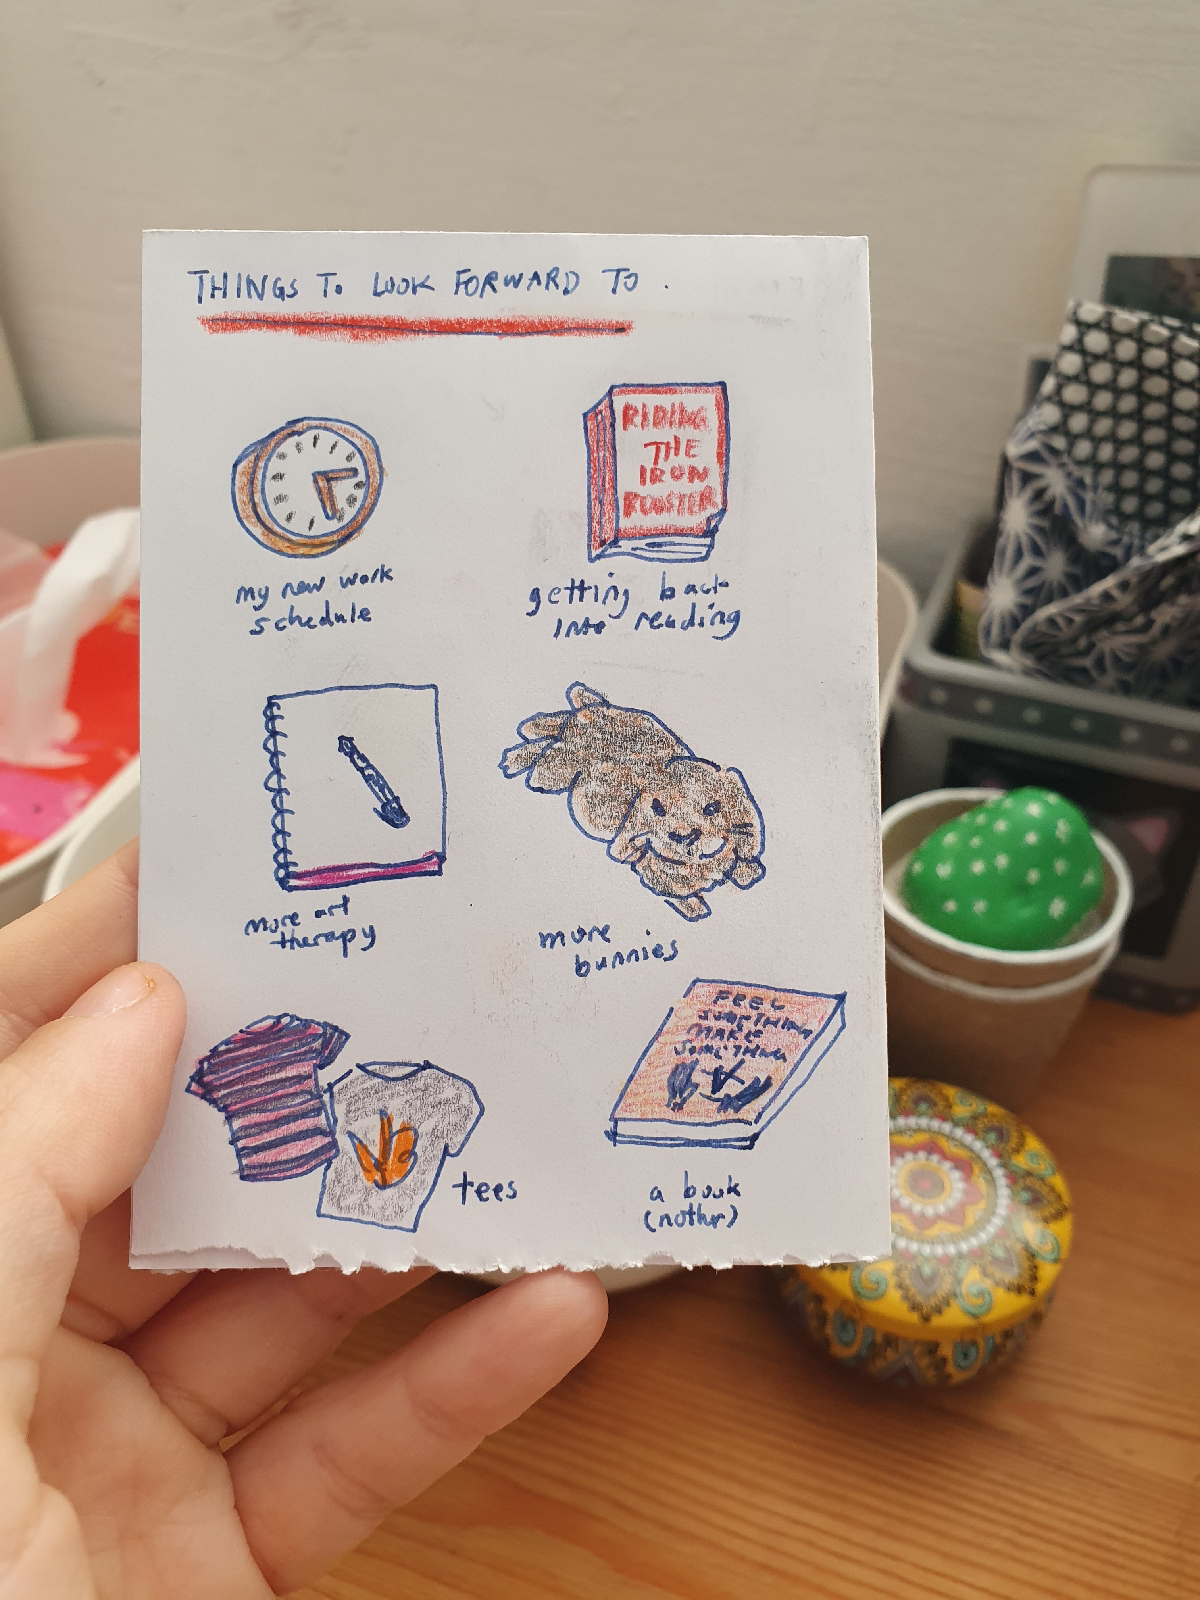 THINGS TO LOOK FORWARD TO.
RIDING
THE
IRON
ROOSTER
my new work
schedule
getting back
into reading
more art
therapy
more
bunnies
FEEL
SOMETHING
MAKE
SOMETHING
tees
a book
(nother)